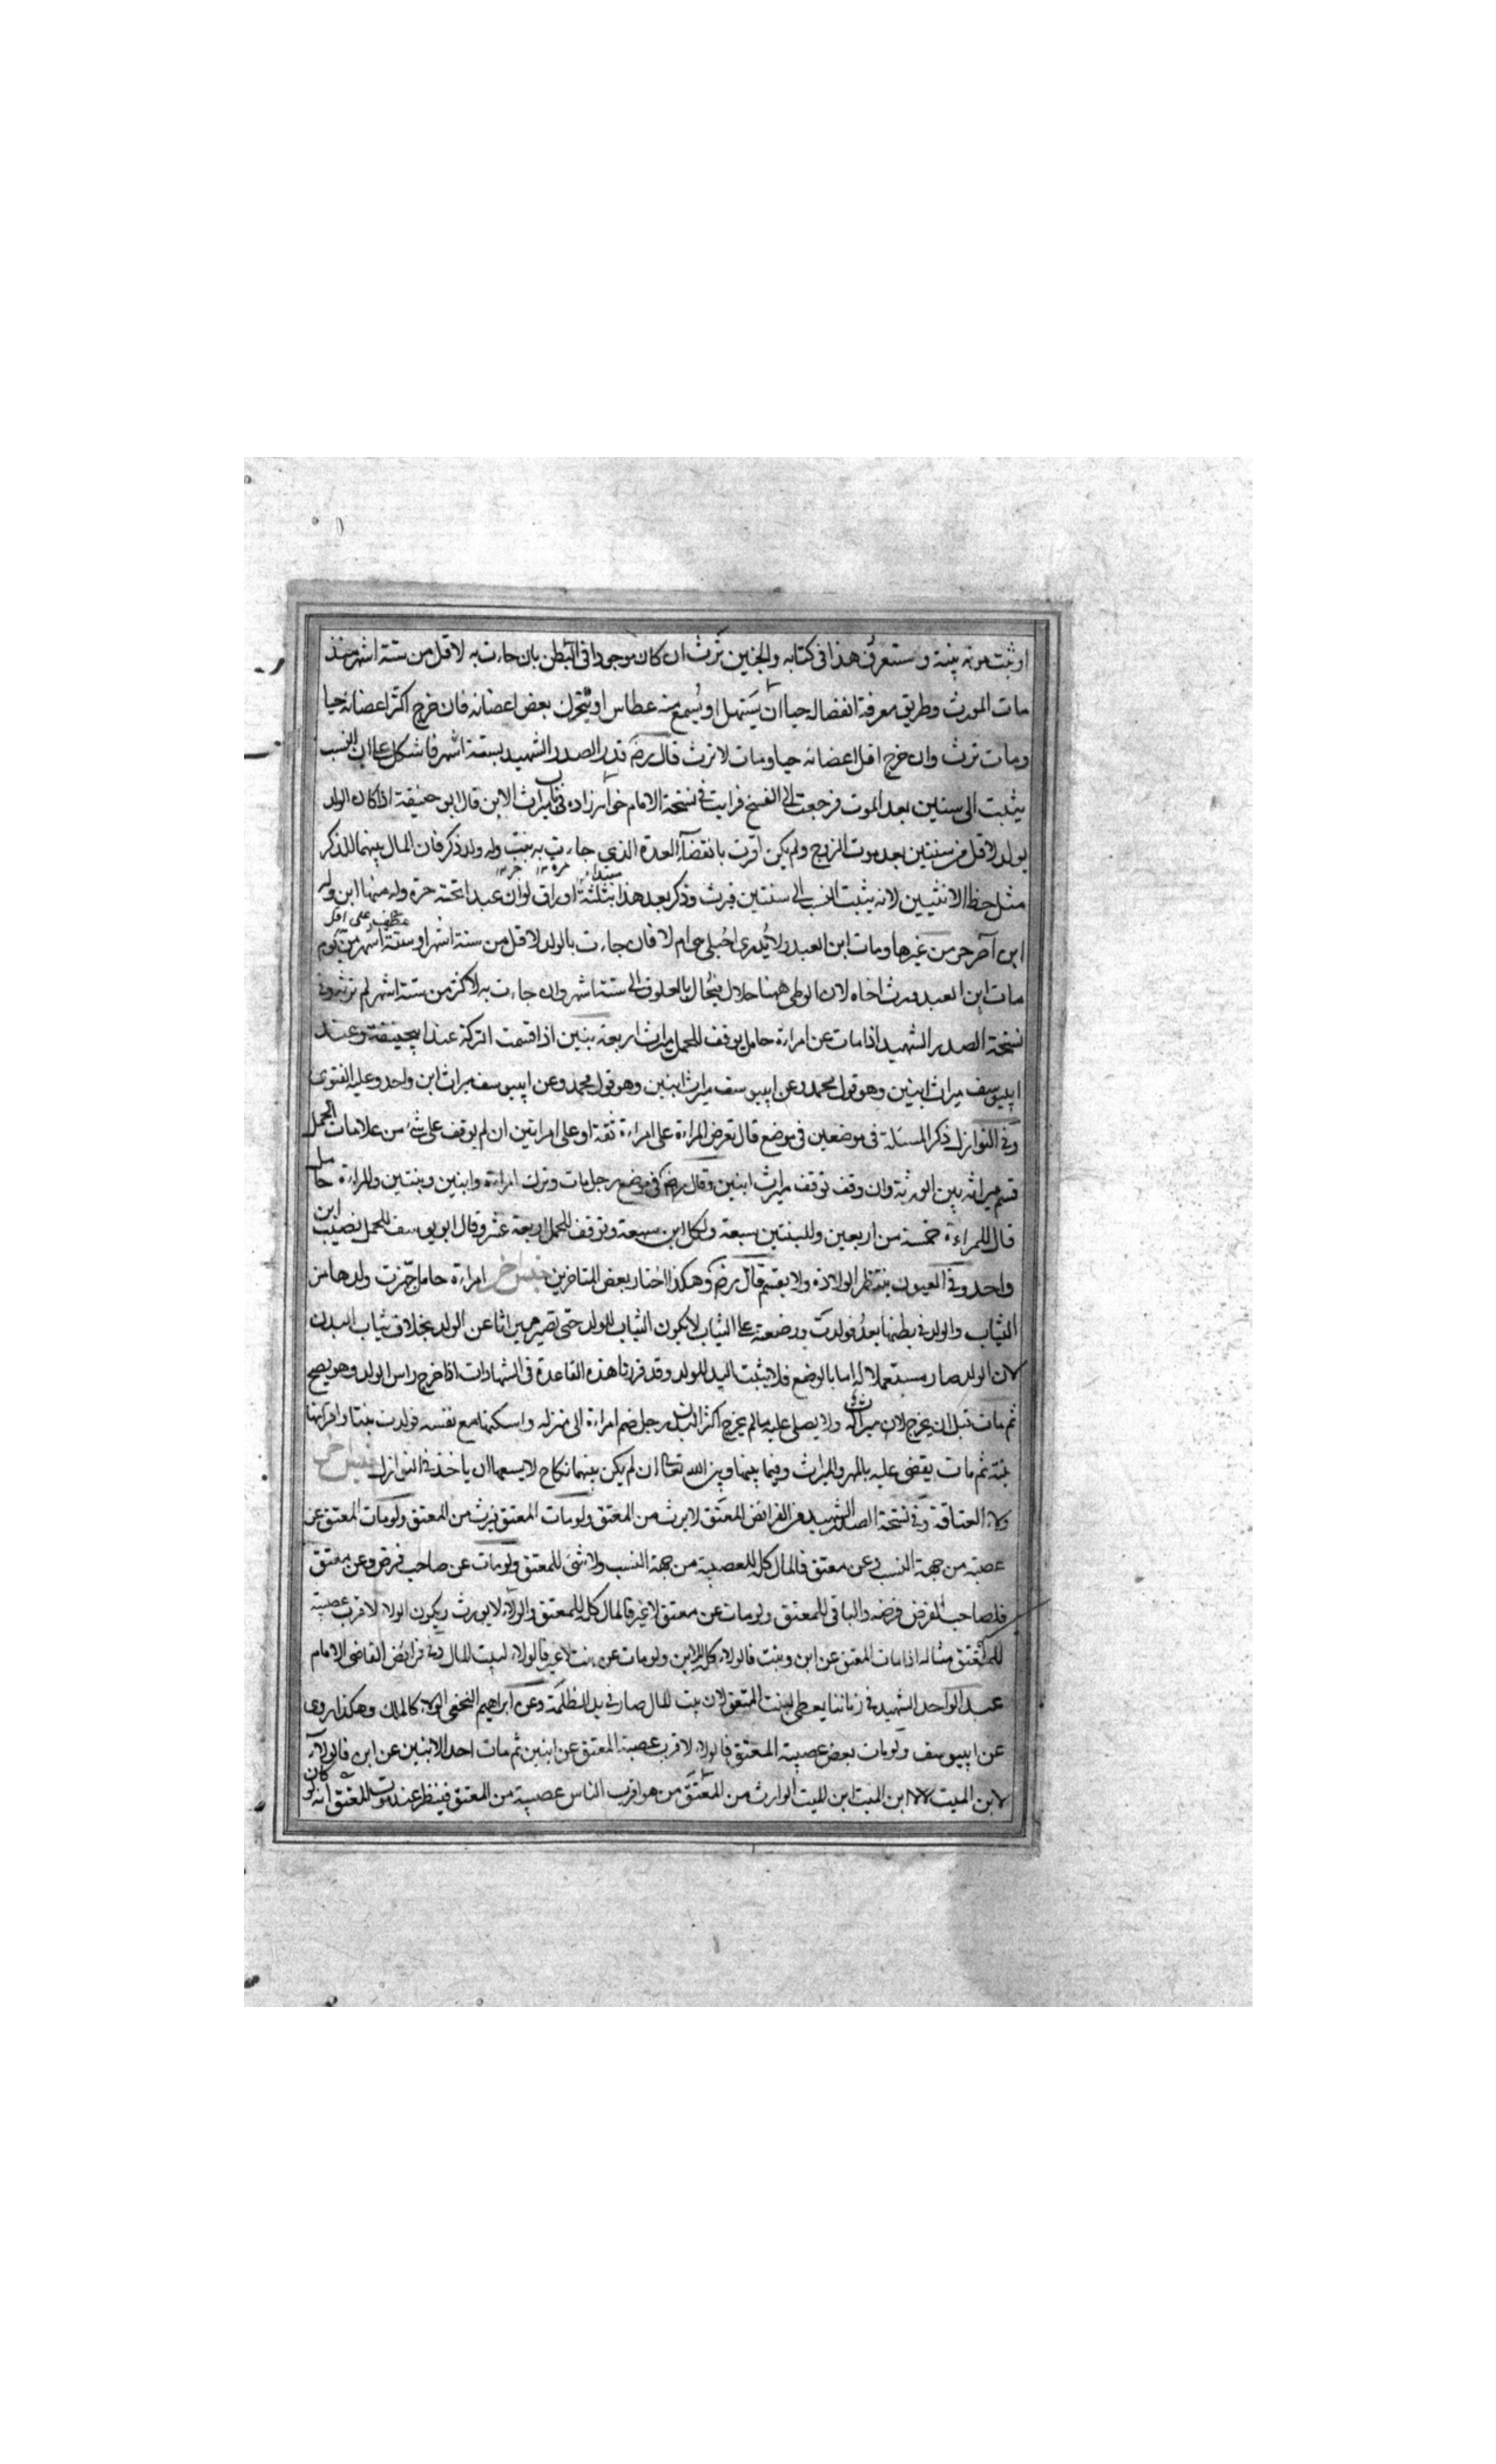 او ثبت موته ببينة وستعرف هذا في كتابه والجنين يرث ان كان موجودا في البطن بان جاءت به لاقل من ستة اشهر منذ
مات المورث وطريق معرفة انفصاله حيا ان يستهل او يسمع منه عطاس او يتحرك بعض اعضائه فان خرج اكثر اعضائه حيا
ومات ترث وان خرج اقل اعضائه حيا ومات لا ترث قال رضـ قدر الصدر الشهيد بستة اشهر فاشكل علي ان النسب
يثبت الى سنتين بعد الموت فرجعت الى النسخ فرايت في نسخة الامام خواهرزاده في باب ميراث الابن قال ابو حنيفة اذا كان الولد
يولد لاقل من سنتين بعد موت الزوج ولم يكن اقرت بانقضاء العدة الذي جاءت به بنت وله ولد ذكر فان المال بينهما للذكر
مثل حظ الانثيين لانه يثبت النسب الى سنتين فيرث وذكر بعد هذا بثلثة اوراق لو ان عبدا تحته حرة وله منها ابن وله
ابن آخر حر من غيرها ومات ابن العبد ولا يدرى احبلى هي ام لا فان جاءت بالولد لاقل من ستة اشهر او ستة اشهر من يوم
مات ابن العبد ورث اخاه لان الوطي ههنا حلال فيحال بالعلوق الى ستة اشهر وان جاءت به لاكثر من ستة اشهر لم ترث وفي
نسخة الصدر الشهيد اذا مات عن امراءة حامل يوقف للحمل ميراث اربعة بنين اذا قسمت التركة عند ابيحنيفة وعند
ابييوسف ميراث ابنين وهو قول محمد وعن ابييوسف ميراث ابنين وهو قول محمد وعن ابييوسف ميراث ابن واحد وعليه الفتوى
وفي النوازل ذكر المسئلة في موضعين في موضع قال تعرض المراءة على امراءة ثقة او على امراتين ان لم يوقف على شيء من علامات الحمل
قسم ميراثه بين الورثة وان وقف توقف ميراث ابنين وقال رضـ في موضع رجل مات وترك امراءة وابنين وبنتين والمراءة حامل
قال للمراءة خمسة من اربعين وللبنتين سبعة ولكل ابن سبعة وتوقف للحمل اربعة عشر وقال ابو يوسف للحمل نصيب ابن
واحد وفي العيون ينتظر الولادة ولا يقسم قال رضـ وهكذا اختار بعض المتاخرين جنس خر امراءة حامل جهزت ولدها من
الثياب والولد في بطنها بعد فولدت ووضعته على الثياب لا يكون الثياب للولد حتى تصير ميراثا عن الولد بخلاف ثياب البدن
لان الولد صار مستعملا له اما بالوضع فلا يثبت اليد للولد وقد قررنا هذه القاعدة في الشهادات اذا خرج راس الولد وهو يصيح
ثم مات قبل ان يخرج لان ميراث له ولا يصلى عليه ما لم يخرج اكثر البدن رجل ضم امراءة الى منزله واسكنها مع نفسه فولدت بنتا واقر انها
بنته ثم مات يقضى عليه بالمهر والميراث وفيما بينها وبين الله تعالى ان لم يكن بينهما نكاح لا يسعها ان ياخذ في النوازل جنس خر
ولاء العتاقة وفي نسخة الصدر الشهيد من الفرائض المعتق لا يرث من المعتق ولو مات المعتق يرث من المعتق ولو مات المعتق عن
عصبة من جهة النسب وعن معتق فالمال كله للعصبة من جهة النسب ولا شيء للمعتق ولو مات عن صاحب فرض وعن معتق
فلصاحب الفرض فرضه والباقي للمعتق ولو مات عن معتق لا غير فالمال كله للمعتق والولاء لا يورث ويكون الولاء لاقرب عصبة
للمعتق مثاله اذا مات المعتق عن ابن وبنت فالولاء كله للابن ولو مات عن بنت لا غير فالولاء لبيت المال وفي فرائض القاضي الامام
عبد الواحد الشهيد في زماننا يعطى لبنت المعتق لان بيت المال صار في يد الظلمة وعن ابراهيم النخعي الولاء كالملك وهكذا روي
عن ابييوسف ولو مات بعض عصبة المعتق فالولاء لاقرب عصبة المعتق عن ابنين ثم مات احد الابنين عن ابن فالولاء
لابن الميت لا لابن الميت ابن للميت الوارث من المعتق من هو اقرب الناس عصبة من المعتق فينظر عند موت المعتق انه لو كان